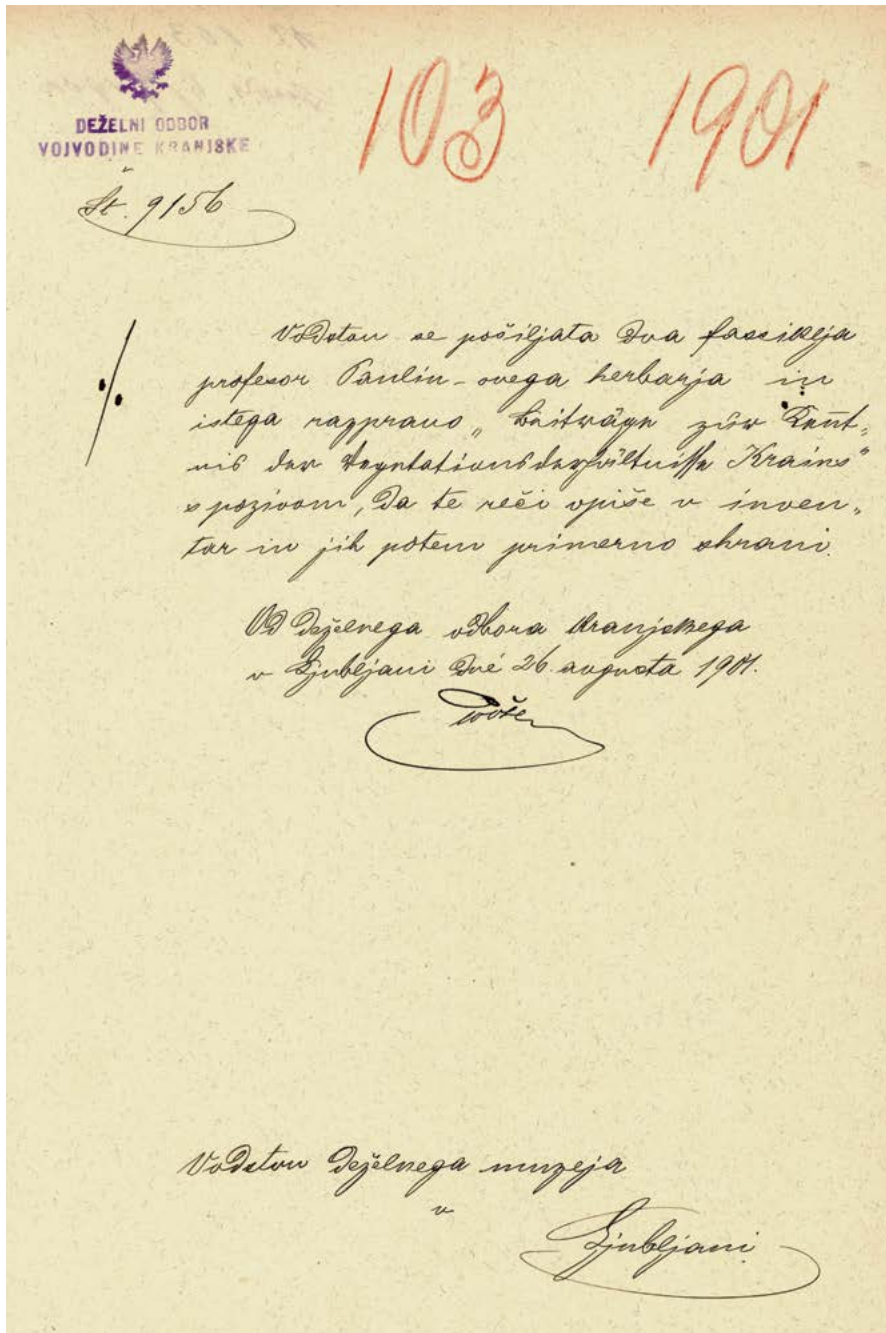 DEŽELNI ODBOR
VOJVODINE KRANJSKE
103 1901
Št. 9156
Vodstvu se pošiljata dva fasciklja
profesor Paulin-ovega herbarja in
istega razpravo „Beiträge zur Kent̅-
nis der Vegetationsverhältnisse Krains“
s pozivom, da te reči vpiše v inven-
tar in jih potem primerno shrani.
Od deželnega odbora kranjskega
v Ljubljani dné 26. avgusta 1901.
Povše
Vodstvu deželnega muzeja
v
Ljubljani